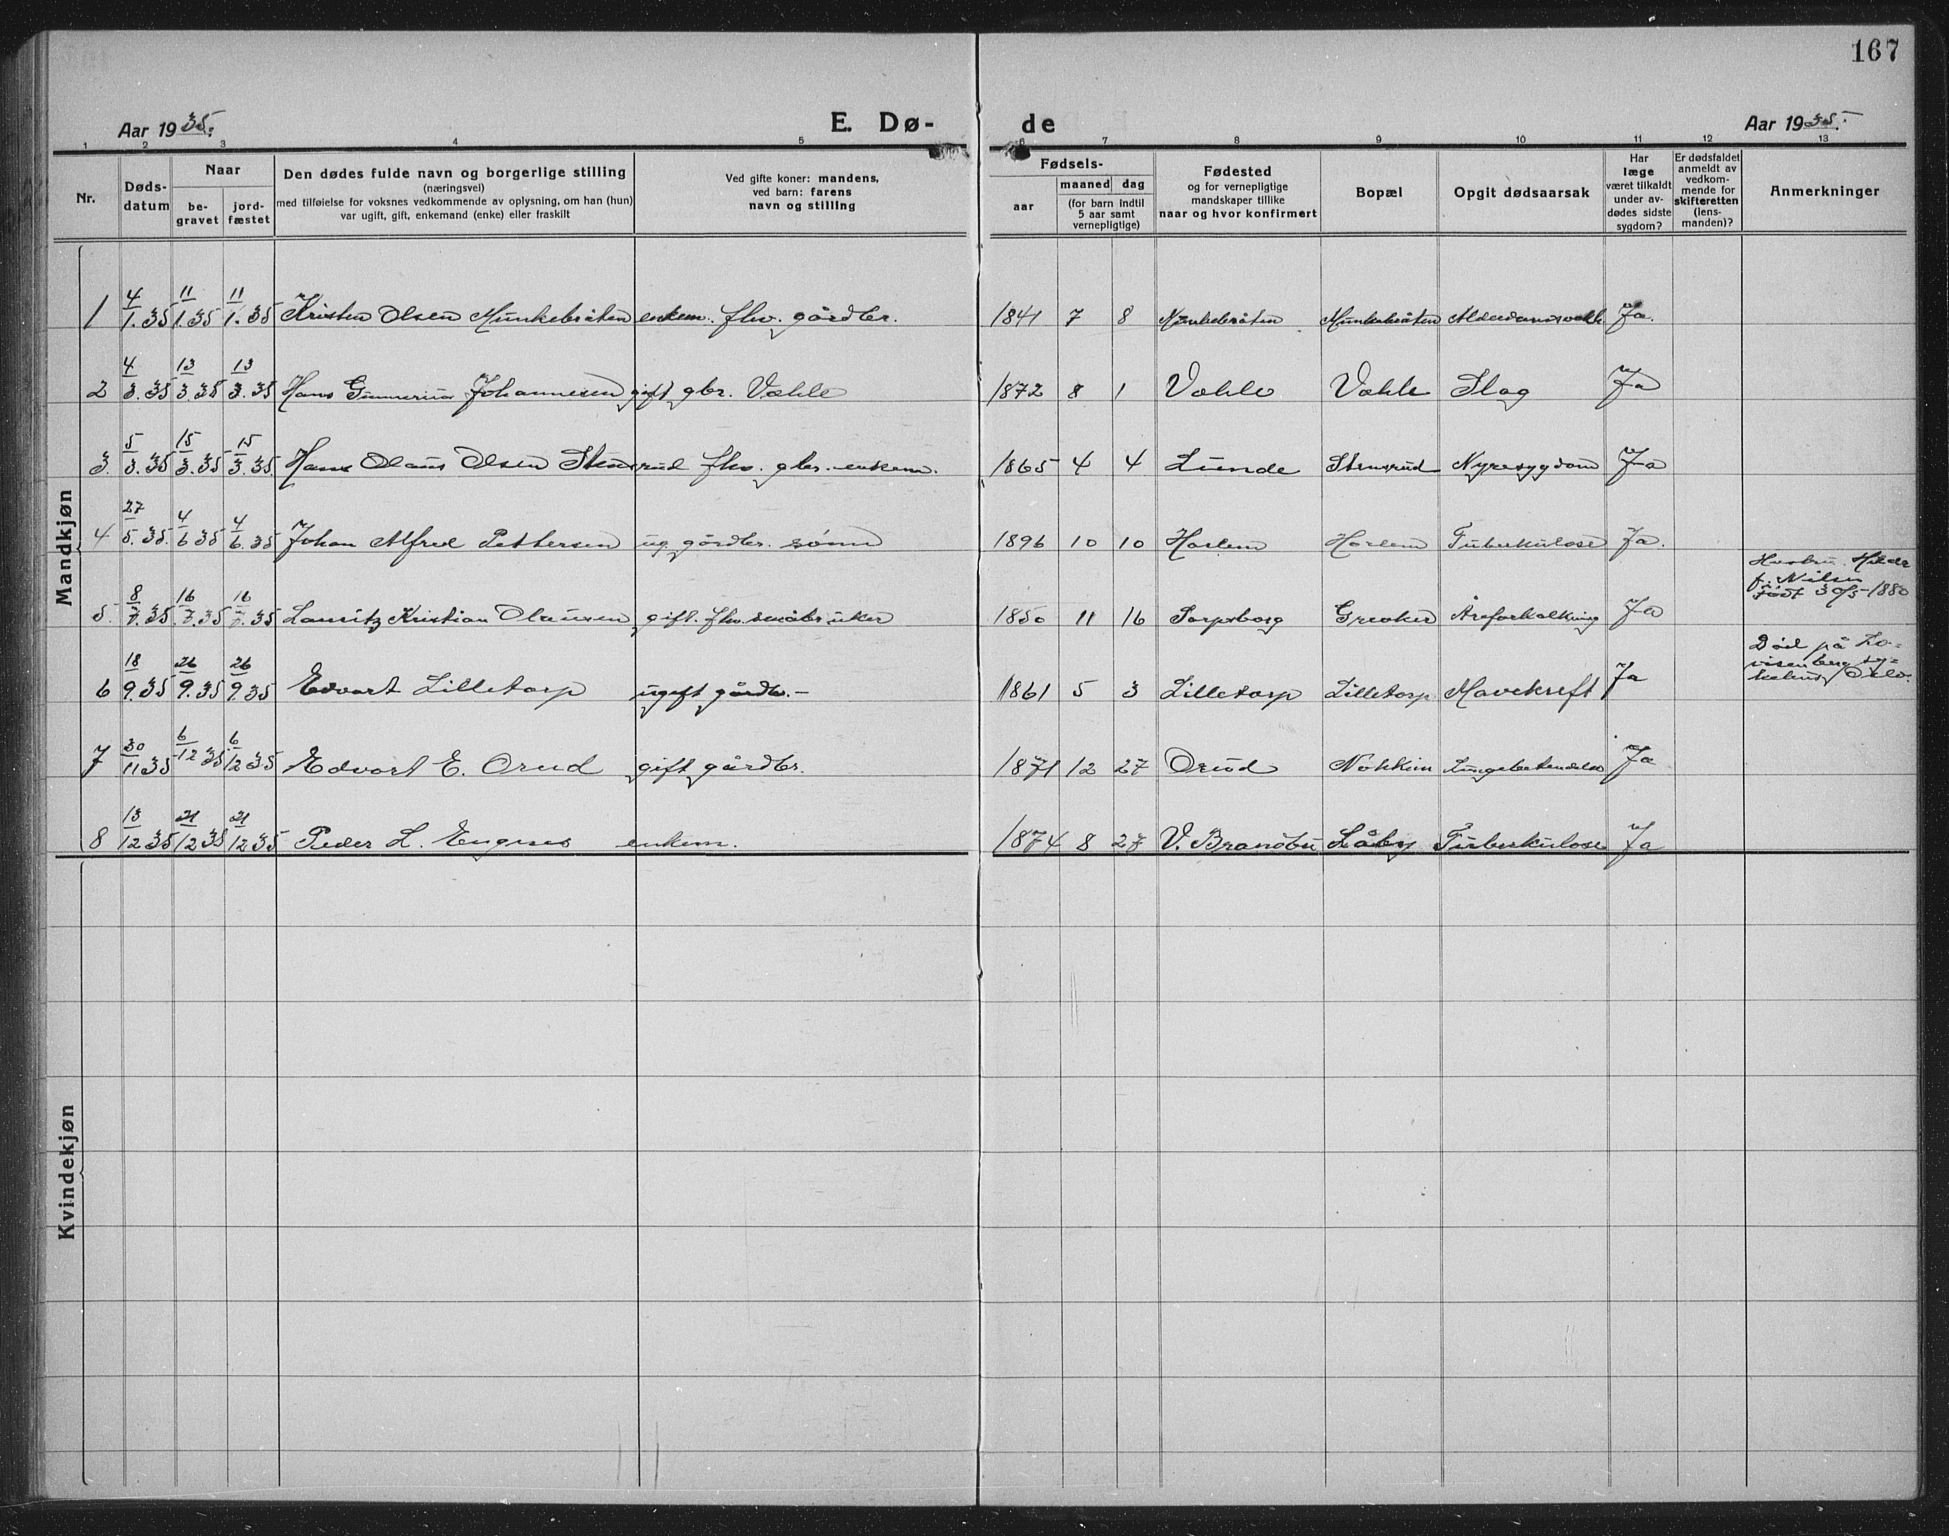 167
Aar 1935. E. Dø- de Aar 1935.
1 2 3 4 5 6 7 8 9 10 11 12 13
Nr. Døds-datum Naar be-gravet jord-fæstet Den dødes fulde navn og borgerlige stilling (næringsvei) med tilføielse for voksnes vedkommende av oplysning, om han (hun) var ugift, gift, enkemand (enke) eller fraskilt Ved gifte koner: mandens, ved barn: farens navn og stilling Fødsels- aar maaned dag (for barn indtil 5 aar samt vernepligtige) Fødested og for vernepligtige mandskaper tillike naar og hvor konfirmert Bopæl Opgit dødsaarsak Har læge været tilkaldt under av-dødes sidste sygdom? Er dødsfaldet anmeldt av vedkom-mende for skifteretten (lens-manden)? Anmerkninger
Mandkjøn
1 4/1.35 11/1.35 11/1.35 Kristen Olsen Munkebråten enkem. fhv. gårdbr. 1841 7 8 Munkebråten Munkebråten Ja.
2 4/3.35 13/3.35 13/3.35 Hans Gunnerius Johannesen gift gbr. Væhle 1872 8 1 Væhle Væhle Slag Ja
3. 5/3.35 15/3.35 15/3.35 Hans Olaus Olsen Stensrud fhv. gbr. enkem. 1865 4 4 Lunde Stensrud Nyresygdom Ja
4 27/5.35. 4/6 35 4/6.35 Johan Alfred Pettersen ug. gårdbr. sønn 1896 10 10 Haslem Haslem Tuberkulose Ja.
5 8/7.35 16/7.35 16/7.35 Lauritz Kristian Olaussen gift. fhv. småbruker 1850 11 16 Sarpsborg Greåker Åreforkalkning Ja Hustru. f. Nilsen født 30/5-1880
6 18/9.35 26/9.35 26/9.35 Edvart Lilletorp ugift gårdbr.- 1861 5 3 Lilletorp Lilletorp Mavekreft Ja Død på Lo-visenberg sy-kehus, Oslo.
7 30/11 35 6/12 35 6/12 35 Edvart E. Orud gift gårdbr. 1871 12 27 Orud Lungebetendelse Ja
8 13/12 35 21/12 35 21/12 35 Peder L. Engnes enkem. 1874 8 27 V. Brandbu Låby Tuberkulose Ja
Kvindekjøn